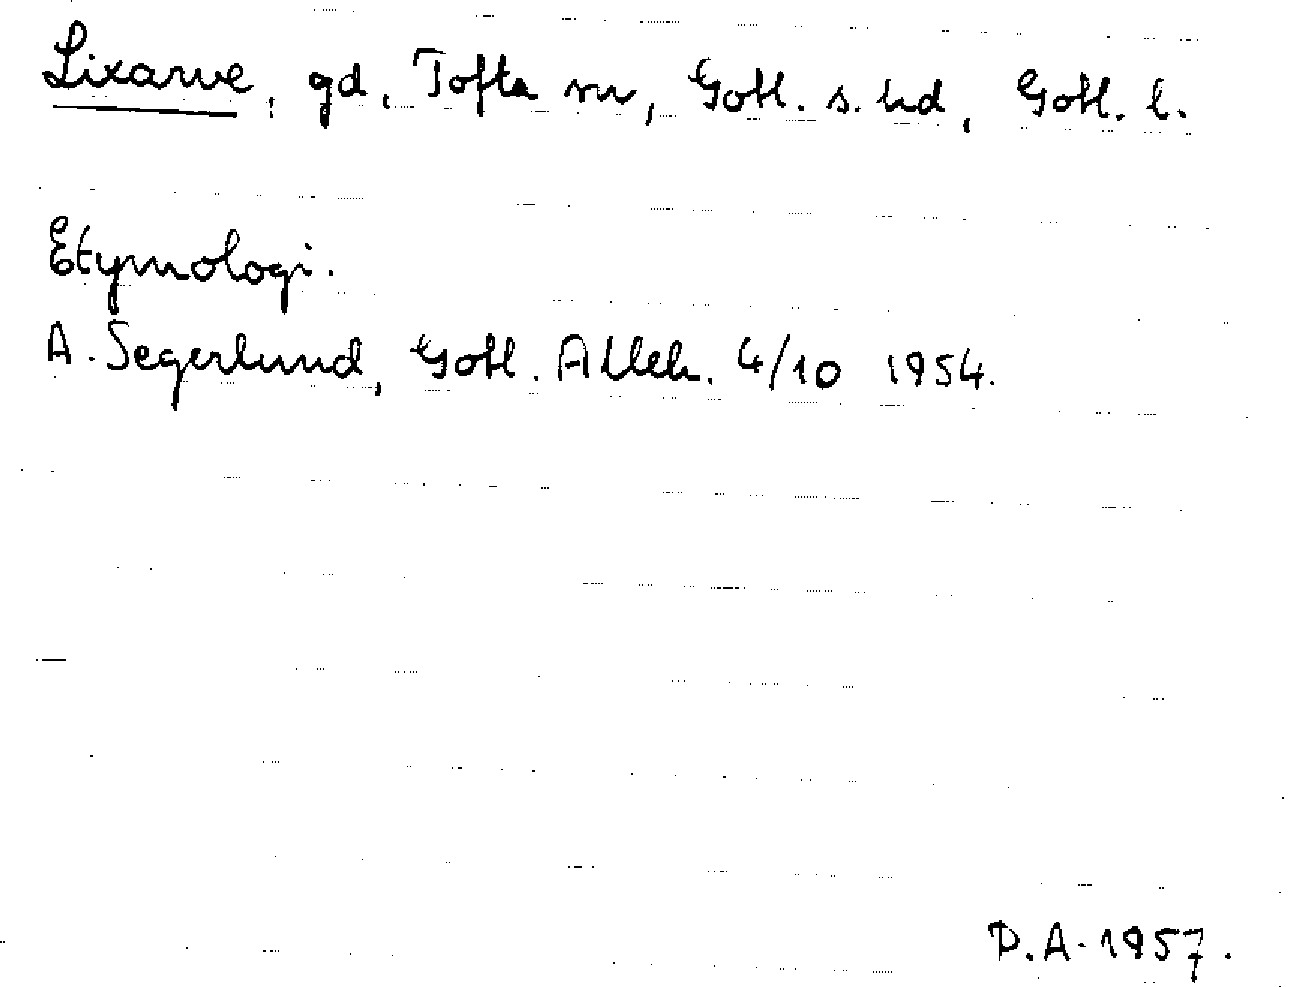 Lixarve, gd, Tofta sn, Gotl. s. hd, Gotl. l.
Etymologi.
A. Segerlund, Gotl. Alleh. 4/10 1954.
D.A. 1957.